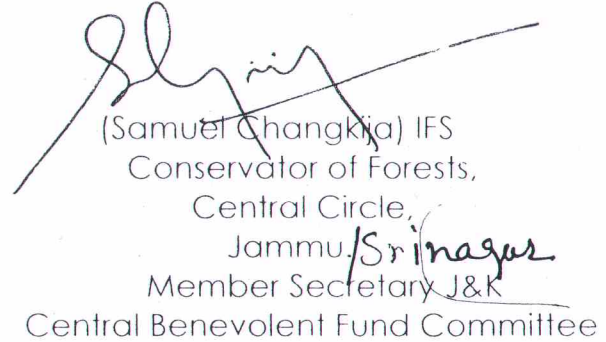 (Samuel Changkija) IFS
Conservator of Forests,
Central Circle,
Jammu./Srinagar
Member Secretary J&K
Central Benevolent Fund Committee